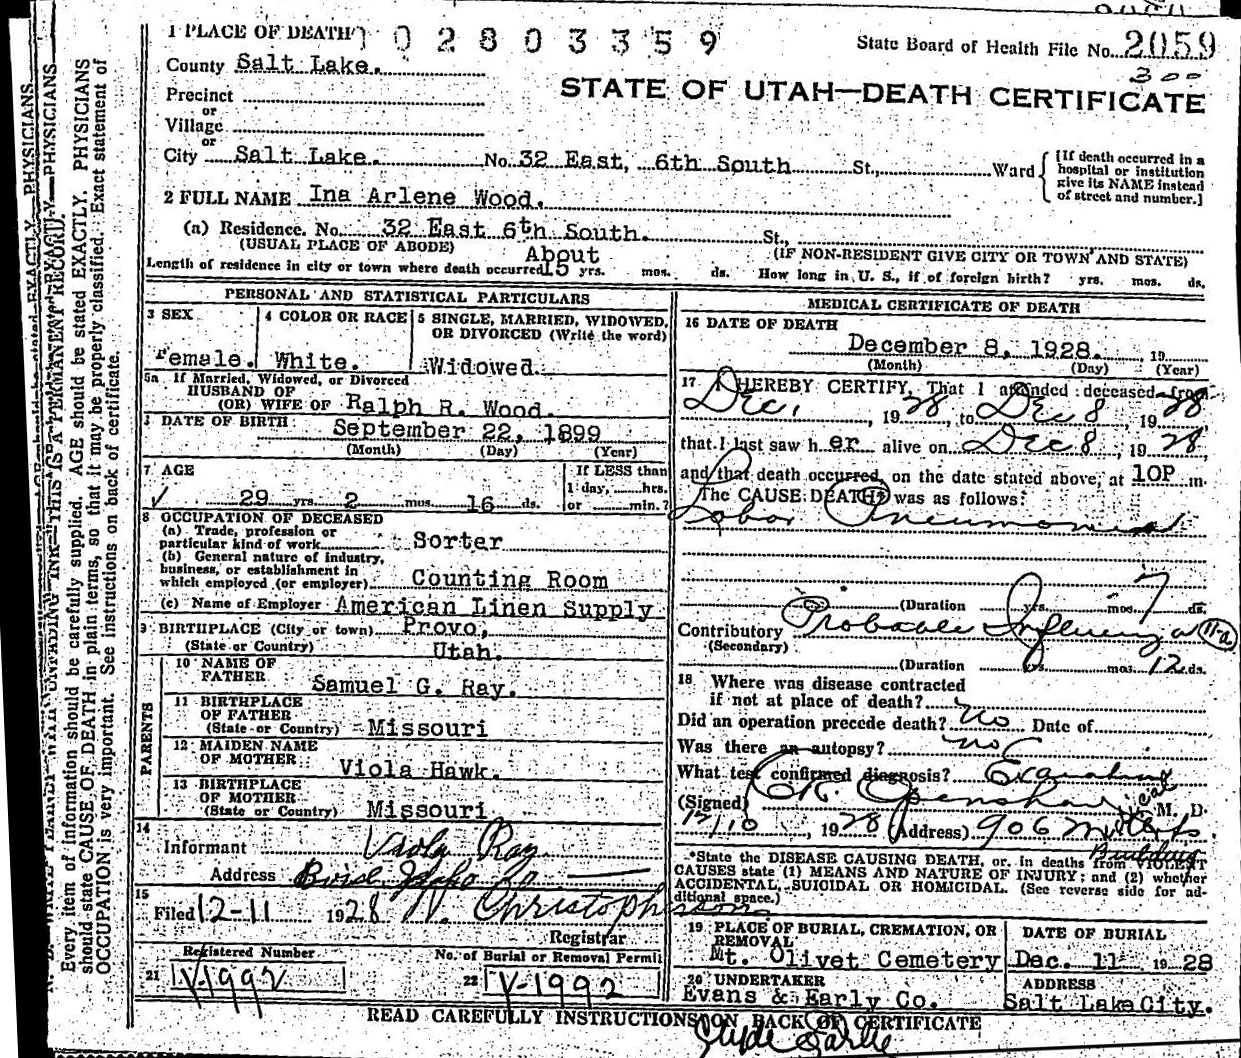 1 PLACE OF DEATH 1 0 2 8 0 3 3 5 9
State Board of Health File No. 2059
300
County Salt Lake.
STATE OF UTAH—DEATH CERTIFICATE
Precinct
or
Village
or
City Salt Lake. No. 32 East, 6th South St., Ward
[If death occurred in a
hospital or institution
give its NAME instead
of street and number.]
2 FULL NAME Ina Arlene Wood.
(a) Residence. No. 32 East 6th South. St.,
(USUAL PLACE OF ABODE)
(IF NON-RESIDENT GIVE CITY OR TOWN AND STATE)
About
Length of residence in city or town where death occurred 15 yrs. mos. ds. How long in U. S., if of foreign birth? yrs. mos. ds.
PERSONAL AND STATISTICAL PARTICULARS
3 SEX
Female.
4 COLOR OR RACE
White.
5 SINGLE, MARRIED, WIDOWED,
OR DIVORCED (Write the word)
Widowed
5a If Married, Widowed, or Divorced
HUSBAND OF
(OR) WIFE OF Ralph R. Wood.
DATE OF BIRTH
September 22, 1899
(Month) (Day) (Year)
7 AGE
29 yrs. 2 mos. 16 ds.
If LESS than
1 day, hrs.
or min.?
8 OCCUPATION OF DECEASED
(a) Trade, profession or
particular kind of work Sorter
(b) General nature of industry,
business, or establishment in
which employed (or employer) Counting Room
(c) Name of Employer American Linen Supply
9 BIRTHPLACE (City or town) Provo,
(State or Country) Utah.
PARENTS
10 NAME OF
FATHER Samuel G. Ray.
11 BIRTHPLACE
OF FATHER
(State or Country) Missouri
12 MAIDEN NAME
OF MOTHER Viola Hawk.
13 BIRTHPLACE
OF MOTHER
(State or Country) Missouri
14
Informant Viola Ray
Address Boise Idaho
15
Filed 12-11 1928 Christopherson
Registrar
Registered Number
21 V-1992
No. of Burial or Removal Permit
22 V-1992
MEDICAL CERTIFICATE OF DEATH
16 DATE OF DEATH
December 8, 1928. , 19
(Month) (Day) (Year)
17 I HEREBY CERTIFY, That I attended deceased from
Dec. , 1928, to Dec 8 , 1928
that I last saw her alive on Dec 8 , 1928,
and that death occurred, on the date stated above, at 10P m.
The CAUSE DEATH* was as follows:
Lobar Pneumonia
(Duration yrs. mos. 7 ds.
Contributory Probable Influenza 11a
(Secondary)
(Duration yrs. mos. 12 ds.
18 Where was disease contracted
if not at place of death?
Did an operation precede death? No Date of
Was there an autopsy? no
What test confirmed diagnosis?
(Signed) Openshaw M. D.
12/10 , 1928 (Address) 906 Medical Arts
Building
*State the DISEASE CAUSING DEATH, or, in deaths from VIOLENT
CAUSES state (1) MEANS AND NATURE OF INJURY; and (2) whether
ACCIDENTAL, SUICIDAL OR HOMICIDAL. (See reverse side for ad-
ditional space.)
19 PLACE OF BURIAL, CREMATION, OR
REMOVAL
Mt. Olivet Cemetery
DATE OF BURIAL
Dec. 11 1928
20 UNDERTAKER
Evans & Early Co.
ADDRESS
Salt Lake City.
READ CAREFULLY INSTRUCTIONS ON BACK OF CERTIFICATE
Clyde Earlie
Every item of information should be carefully supplied. AGE should be stated EXACTLY. PHYSICIANS
should state CAUSE OF DEATH in plain terms, so that it may be properly classified. Exact statement of
OCCUPATION is very important. See instructions on back of certificate.